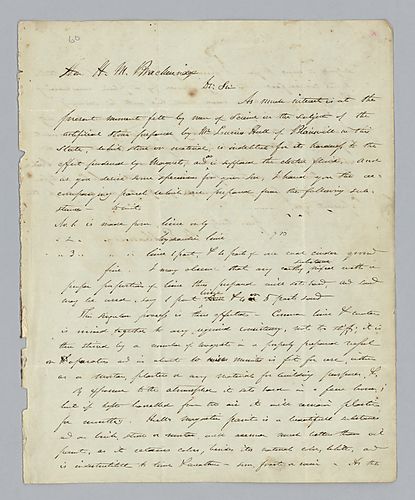 60
Hon H. M. Brackenridge
Dr. Sir
As much interest is at the
present moment felt by men of Science in the subject of the
artificial Stone prepared by Mr. Lucius Hall of Plainville in this
State, which stone or material, is indebted for its hardness to the
effect produced by Magnets, and I suppose the electric fluid. And
as you desire some specimens for your Son, I hand you the ac-
companying parcels which are prepared from the following sub-
stances to wit.
No. 1. is made from lime only
" 2 " " " hydraulic lime
" 3 " " " lime 1 part, & 4 parts of sea coal cinder ground
fine. I may observe that any earthy substance, mixed with a
proper proportion of lime thus prepared will set hard and sand
may be used, say 1 part lime & 4 or 5 parts sand
This singular process is thus effected - Common lime & water
is mixed together to any required consistency, not to stiff; it is
then stirred by a number of magnets in a properly prepared vessel
or apparatus and in about 10 minutes is fit for use, either
as a stucco plaster or any material for building purposes &c
By exposure to the atmosphere it sets hard in a few hours;
but if kept barrelled from the air it will remain plastic
for months. Halls magnetic paint is a beautiful substance
and on brick, stone or mortar will answer much better than oil
paint, as it retains colors, besides its natural color, white, and
is indestructible to time & weather - sun, frost or rain - As the